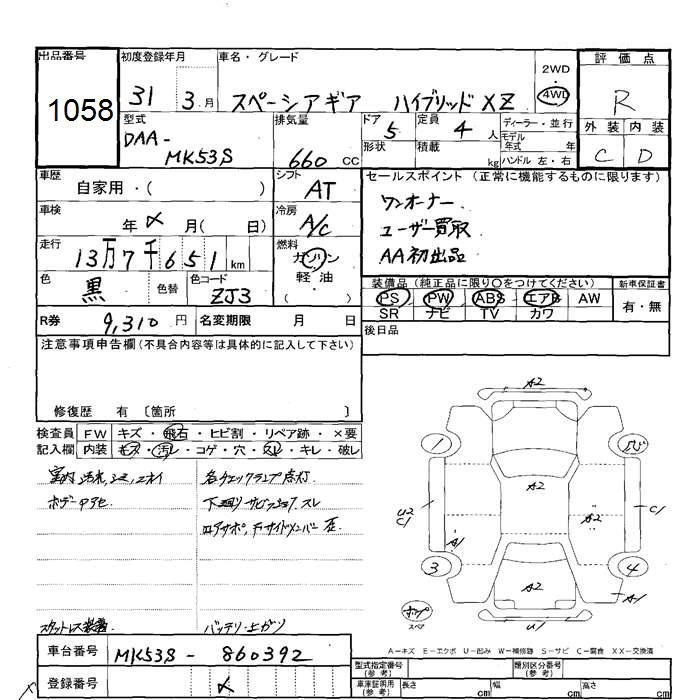 出品番号 初度登録年月 車名・グレード 2WD・4WD 評価点
1058 31 3月 スペーシアギア ハイブリッドXZ R
型式 排気量 ドア 定員 ディーラー・並行 外装 内装
DAA-MK53S 660cc 5 4人 モデル年式 年 C D
形状 積載 kg ハンドル 左・右
車歴 シフト セールスポイント (正常に機能するものに限ります)
自家用・( ) AT
ワンオーナー
車検 冷房
年メ月( 日) A/C
ユーザー買取
AA初出品
走行 燃料
13万7千651km ガソリン・軽油 ( )
色 色替 色コード
黒 ZJ3
装備品 (純正品に限り○をつけてください) 新車保証書
PS PW ABS エアB AW 有・無
SR ナビ TV カワ
R券 9,310円 名変期限 月 日
後日品
注意事項申告欄(不具合内容等は具体的に記入して下さい)
修復歴 有〔箇所 〕
検査員 FW キズ・飛石・ヒビ割・リペア跡・×要
記入欄 内装 キズ・汚レ・コゲ・穴・スレ・キレ・破レ
室内汚れ,シミ,ニオイ
各チェックランプ点灯
下廻りサビ
スタットレス装着
バッテリ-上がり
A2
1
A2
U2
C1
A2
C1
A1
3
A2
4
A1
U1
スペア
A-キズ E-エクボ U-凹み W-補修跡 S-サビ C-腐食 XX-交換済
車台番号 MK53S-860392
登録番号 メ
型式指定番号(参考) 類別区分番号(参考)
車庫証明用(参考) 長さ cm 幅 cm 高さ cm